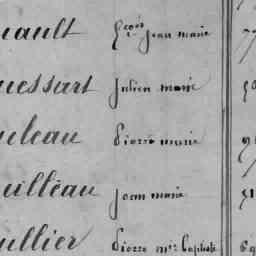 uault fçois Jean marie 77
uessart Julien marie 50
uleau Pierre marie 9
uilleau Jean marie 51
ullier Pierre mie baptiste 69